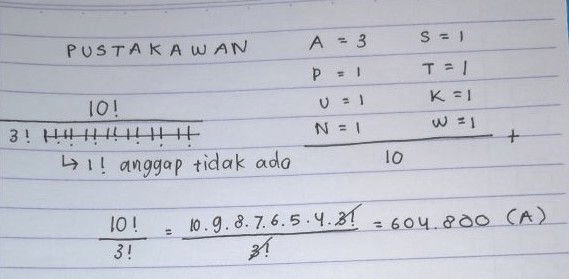 PUSTAKAWAN
A = 3 S = 1
P = 1 T = 1
U = 1 K = 1
N = 1 W = 1
10 +
10!
3! 1! 1! 1! 1! 1! 1! 1!
↳ 1! anggap tidak ada
10! / 3! = 10.9.8.7.6.5.4.3! / 3! = 604.800 (A)